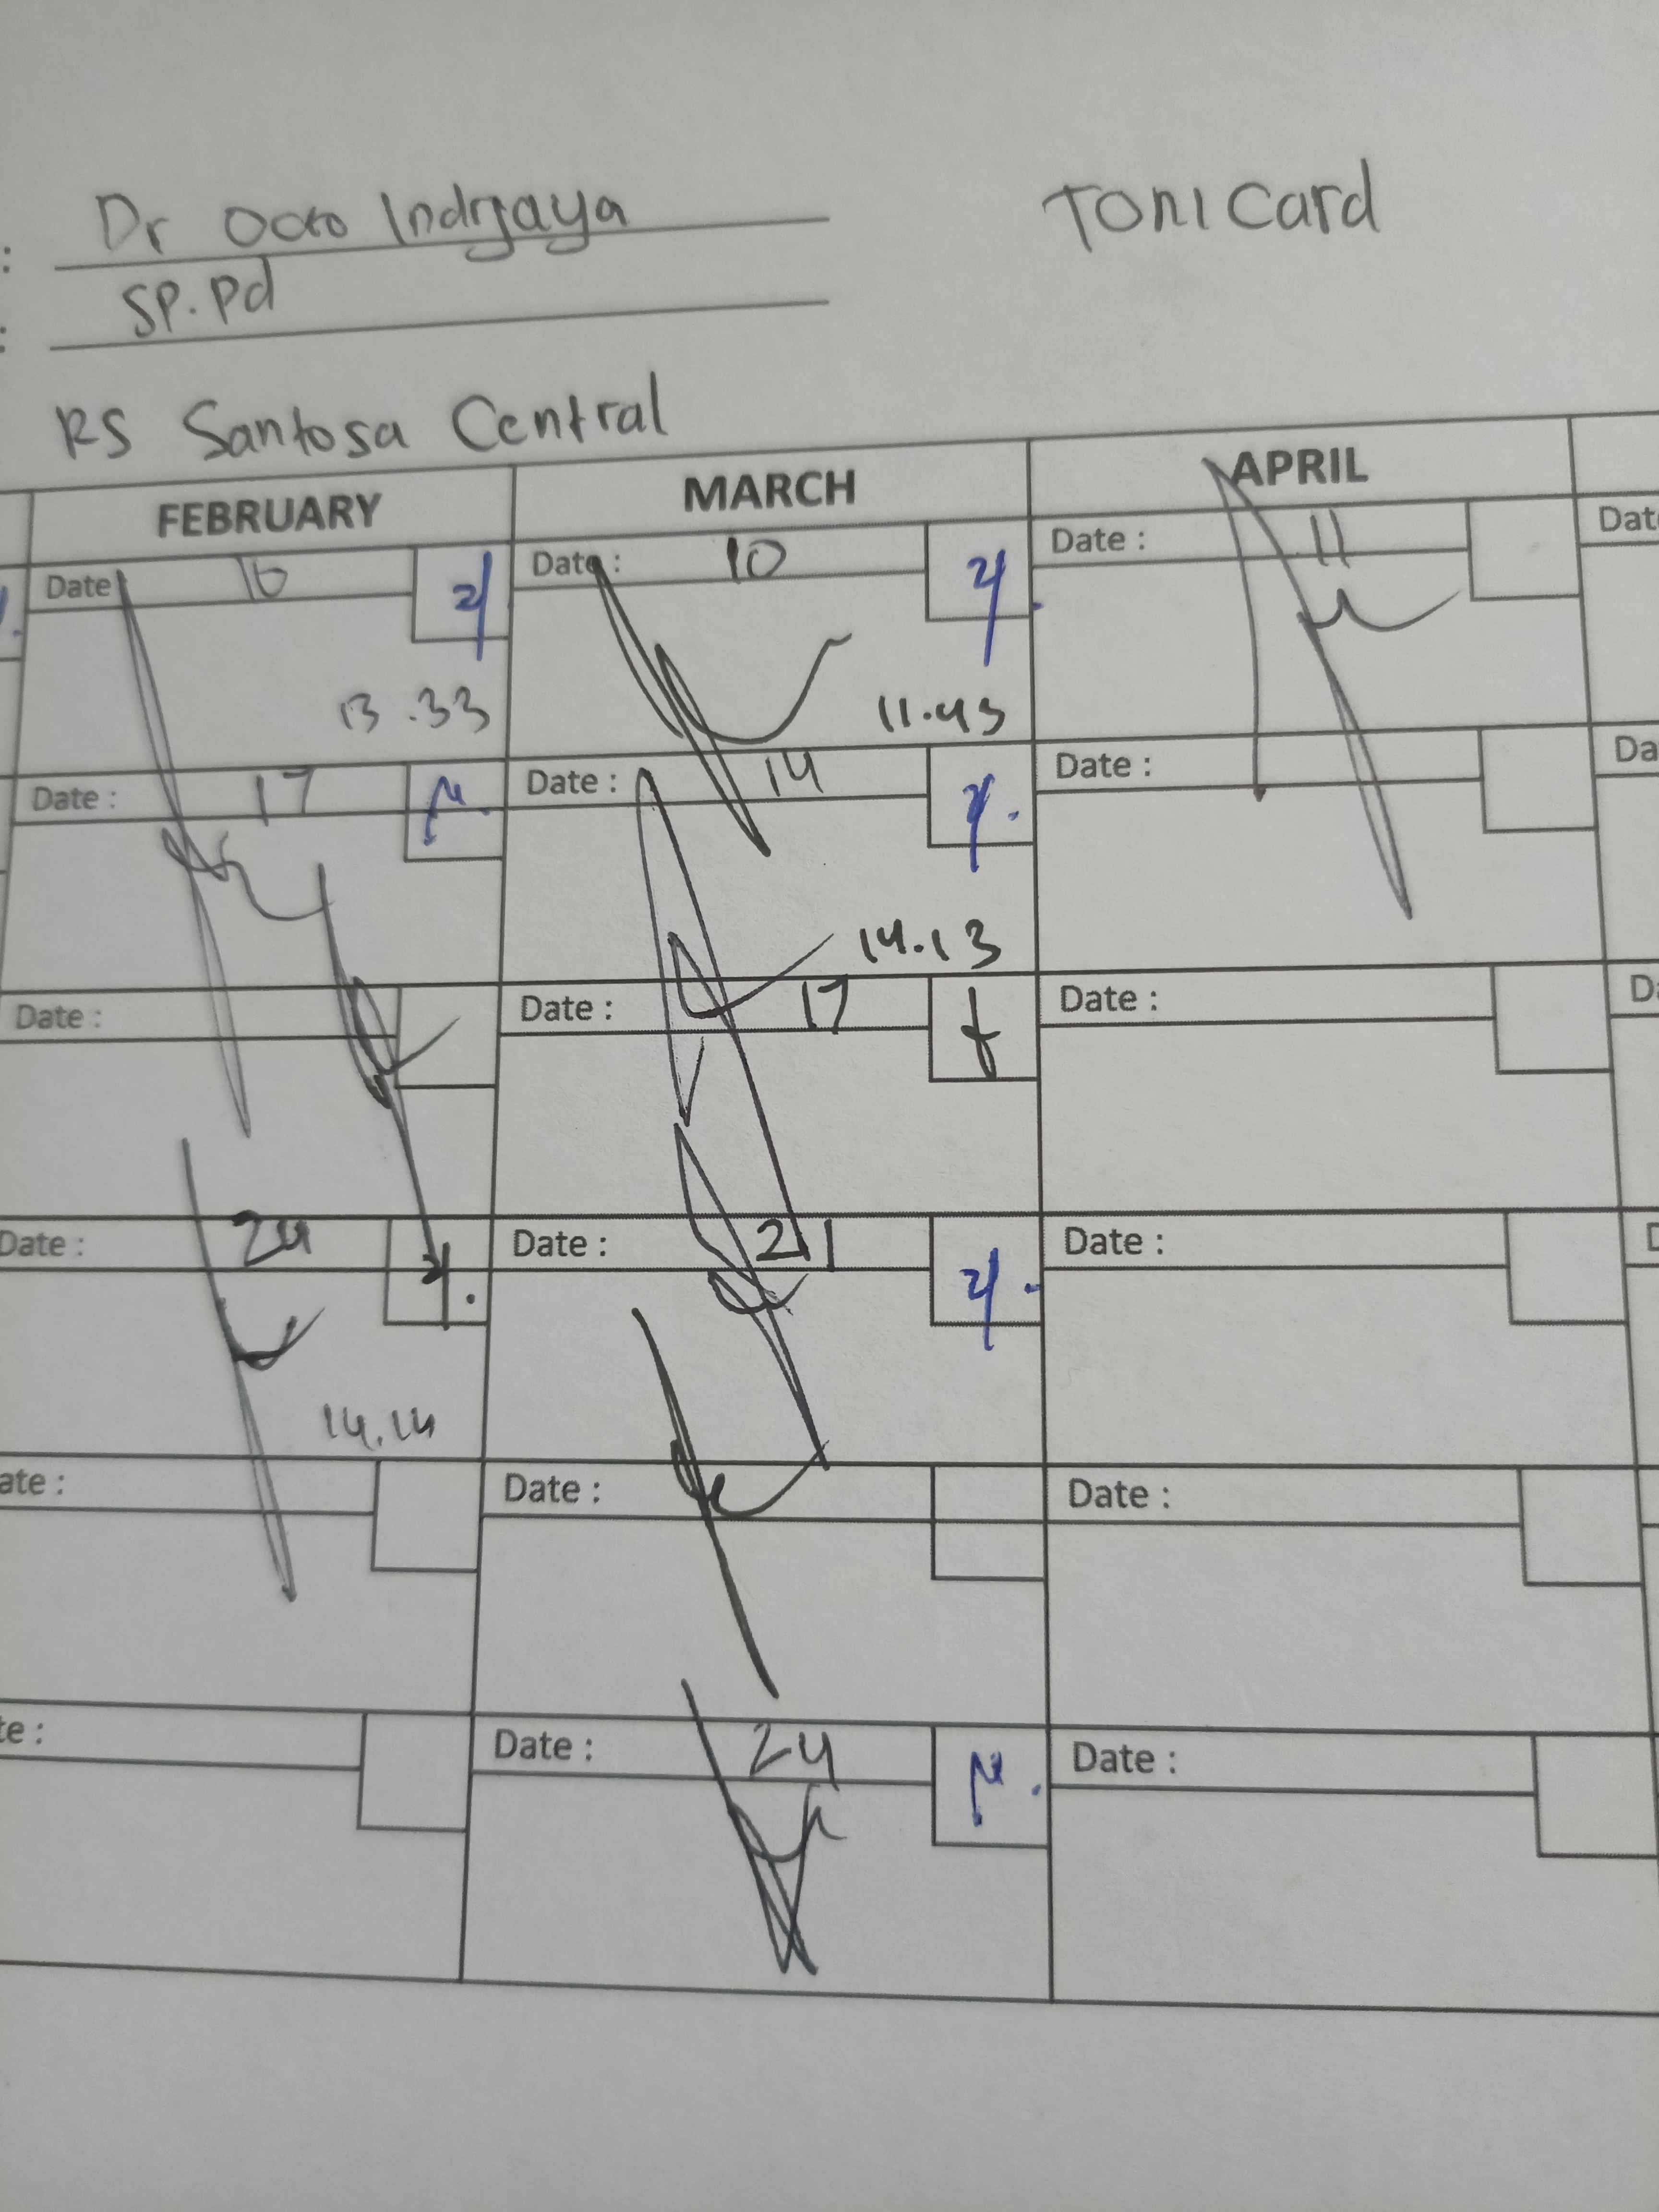 : Dr Octo Indrajaya
TONICard
: SP.Pd
RS Santosa Central
FEBRUARY MARCH APRIL
Date 16 Date : 10 Date : 11 Date
13.33 11.43
Date : 17 Date : 14 Date : Da
14.13
Date : Date : 17 Date : D
Date : 24 Date : 21 Date : D
14.14
ate : Date : Date :
te : Date : 24 Date :